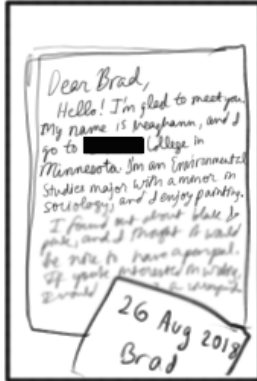 Dear Brad,
Hello! I'm glad to meet you.
My name is Meaghann, and I
go to College in
Minnesota. I'm an Environmental
Studies major with a minor in
sociology, and I enjoy painting.
I found out about
and I thought it would
be nice to have a penpal.
If you're interested in
I would
26 Aug 2018
Brad